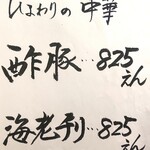 ひまわりの中華
酢豚…825
えん
海老チリ…825
えん